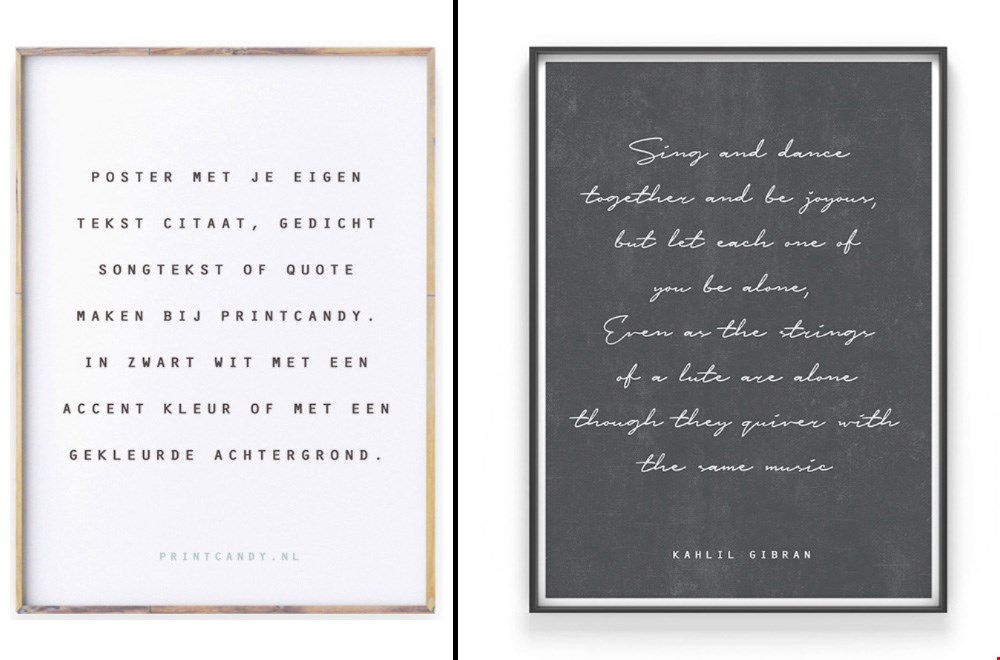 POSTER MET JE EIGEN
TEKST CITAAT, GEDICHT
SONGTEKST OF QUOTE
MAKEN BIJ PRINTCANDY.
IN ZWART WIT MET EEN
ACCENT KLEUR OF MET EEN
GEKLEURDE ACHTERGROND.
PRINTCANDY.NL
Sing and dance
together and be joyous,
but let each one of
you be alone,
Even as the strings
of a lute are alone
though they quiver with
the same music
KAHLIL GIBRAN